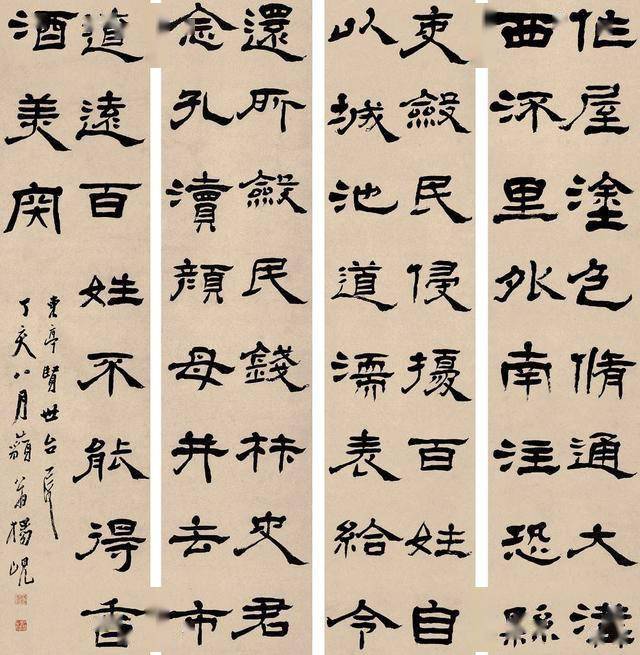 作屋塗色脩通大溝
西流里外南注恐縣
吏斂民侵擾百姓自
以城池道濡表給令
還所斂民錢材史君
念孔瀆顏母井去市
遼遠百姓不能得香
酒美宍
東亭賢世台屬
丁亥八月藐翁楊峴